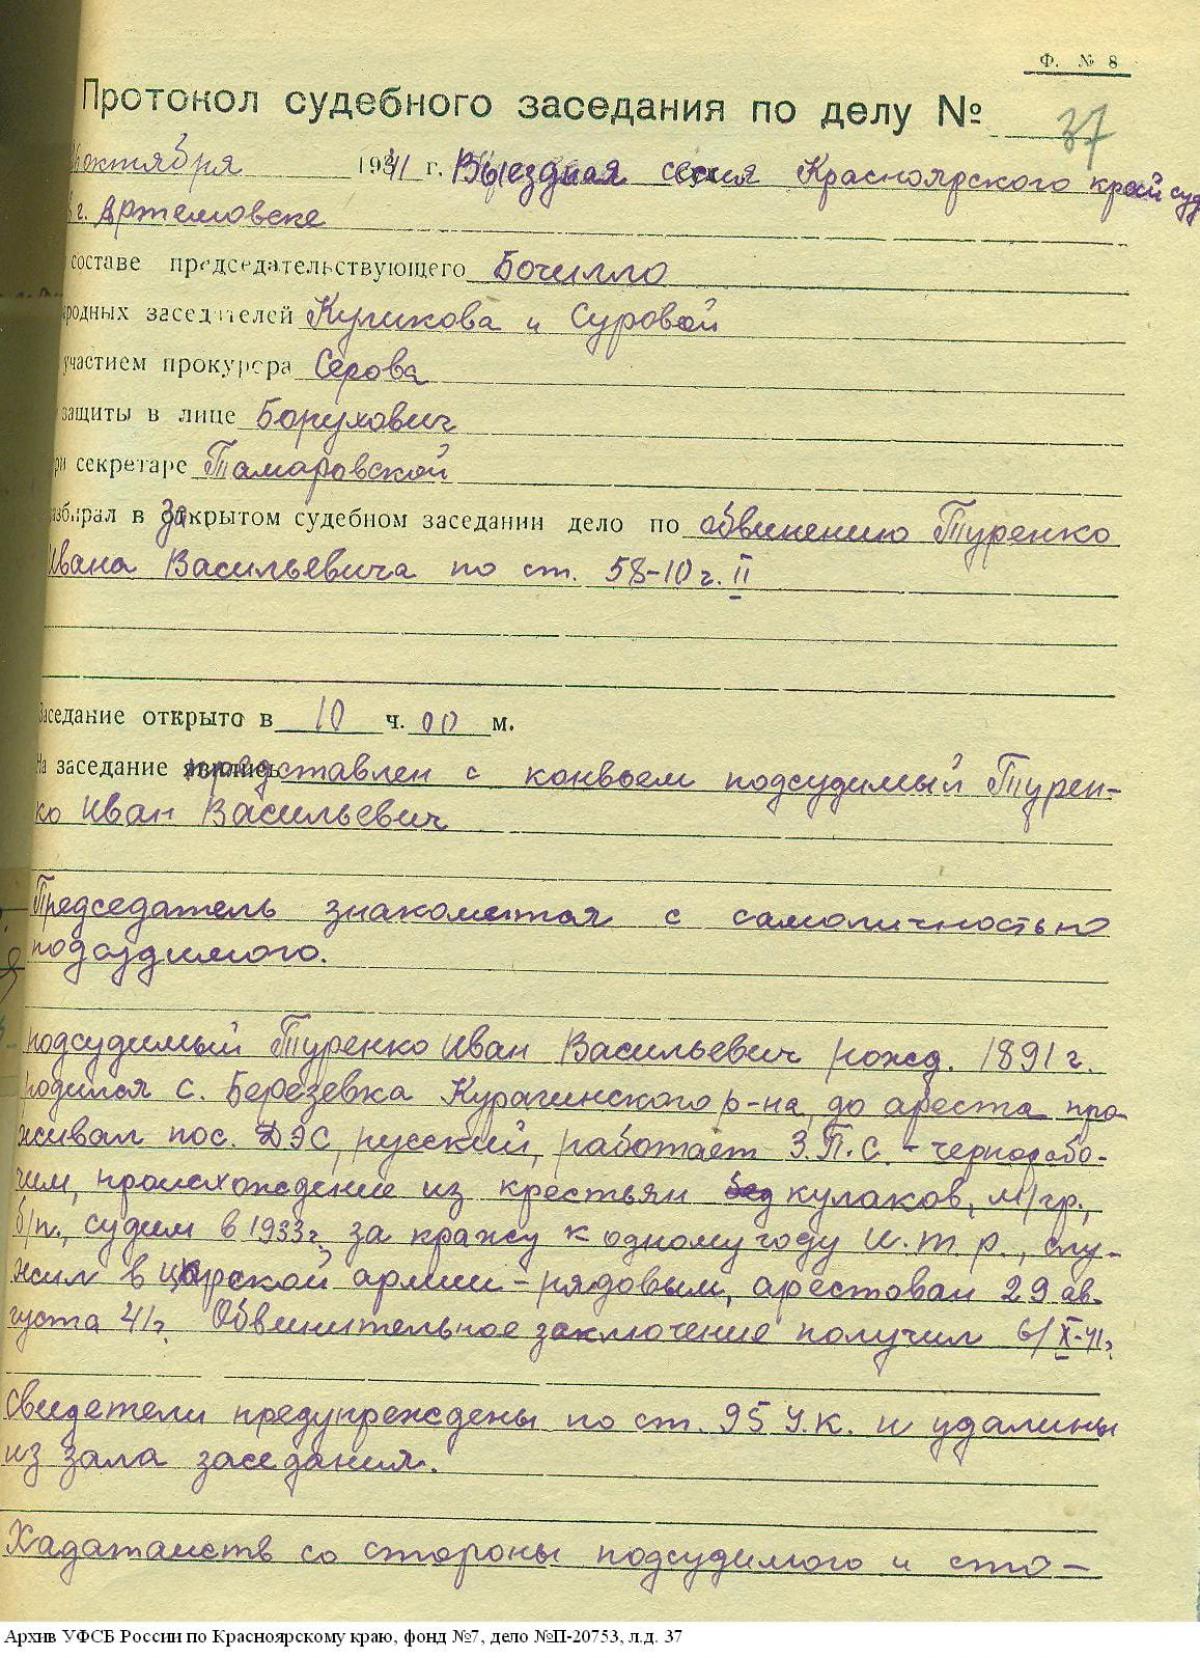 Ф. № 8
Протокол судебного заседания по делу №
37
октября 1941 г. Выездная сессия Красноярского край суд
г. Артемовске
составе председательствующего Бочилло
родных заседателей Куликова и Суровой
участием прокурора Серова
защиты в лице Борухович
ри секретаре Тамаровской
азбирал в закрытом судебном заседании дело по обвинению Туренко
Ивана Васильевича по ст. 58-10 г. II
Заседание открыто в 10 ч. 00 м.
На заседание представлен с конвоем подсудимый Турен-
ко Иван Васильевич
Председатель знакомится с самоличностью
подсудимого.
подсудимый Туренко Иван Васильевич рожд. 1891 г.
родился с. Березевка Курагинского р-на, до ареста про
живал пос. ДЭС, русский, работает З.П.С. - чернорабо-
чим, происхождение из крестьян кулаков, м/гр.,
б/п., судим в 1933 г. за кражу к одному году И.т.р., слу-
жил в царской армии - рядовым, арестован 29 ав-
густа 41 г. Обвинительное заключение получил 6/X-41 г.
Свидетели предупреждены по ст. 95 У.К. и удалины
из зала заседания.
Хадатаиств со стороны подсудимого и сто-
Архив УФСБ России по Красноярскому краю, фонд №7, дело №П-20753, л.д. 37